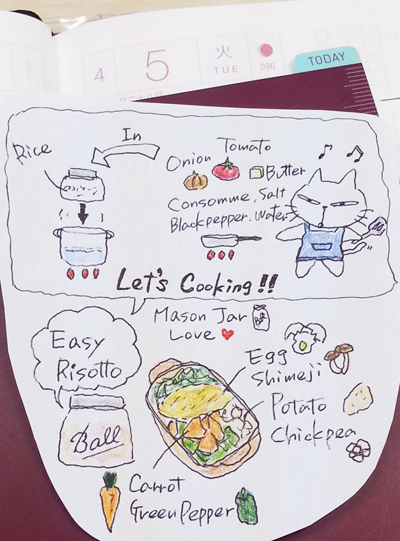 4
5
火
TUE
096
TODAY
In
Rice
Onion Tomato
Butter
Consomme, Salt
Blackpepper. Water
Let's Cooking!!
Mason Jar
Love
Easy
Risotto
Egg
Shimeji
Potato
Chickpea
Ball
Carrot
GreenPepper